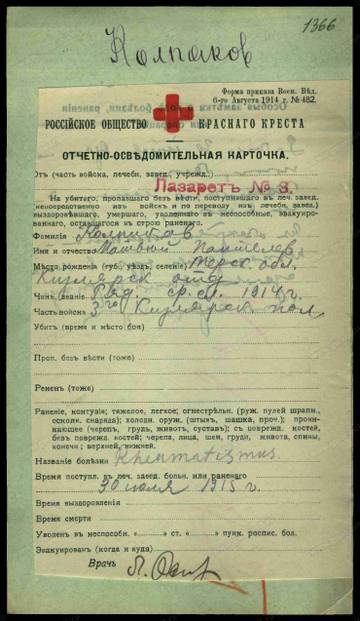 1366
Колпаков
Форма приказа Воен. Вѣд.
6-го Августа 1914 г. № 482.
РОССІЙСКОЕ ОБЩЕСТВО КРАСНАГО КРЕСТА
ОТЧЕТНО-ОСВѢДОМИТЕЛЬНАЯ КАРТОЧКА.
Отъ (часть войска, лечебн. завед., учрежд.)
Лазаретъ № 3.
На убитаго, пропавшаго безъ вѣсти, поступившаго въ леч. завед.
(непосредственно изъ войскъ и по переводу изъ лечебн. завед.)
выздоровѣвшаго, умершаго, уволеннаго въ неспособные, эвакуиро-
ваннаго, оставшагося въ строю раненаго.
Фамилія Колпаковъ
Имя и отчество Матвѣй Пантелев
Мѣсто рожденія (губ., уѣзд., селеніе) Терск. обл.
Кизлярск. отд.
Чинъ, званіе ряд. ср. сл. 1914 г.
Часть войскъ 3го Кизлярск. пол
Убитъ (время и мѣсто боя)
Проп. безъ вѣсти (тоже)
Раненъ (тоже)
Раненіе, контузія; тяжелое, легкое; огнестрѣльн. (руж. пулей шрапн.,
осколк. снаряда); холодн. оруж. (штык., шашка, проч.); прони-
кающее (черепъ, грудь, животъ, суставъ); съ поврежд. костей,
безъ поврежд. костей; черепа, лица, шеи, груди, живота, спины,
конечн.; верхней, нижней.
Названіе болѣзни Rheumatismus
Время поступл. въ леч. завед. больн. или раненаго
30 іюля 1915 г.
Время выздоровленія
Время смерти
Уволенъ въ неспособн. «» ст. «» пунк. роспис. бол.
Эвакуированъ (когда и куда)
Врачъ